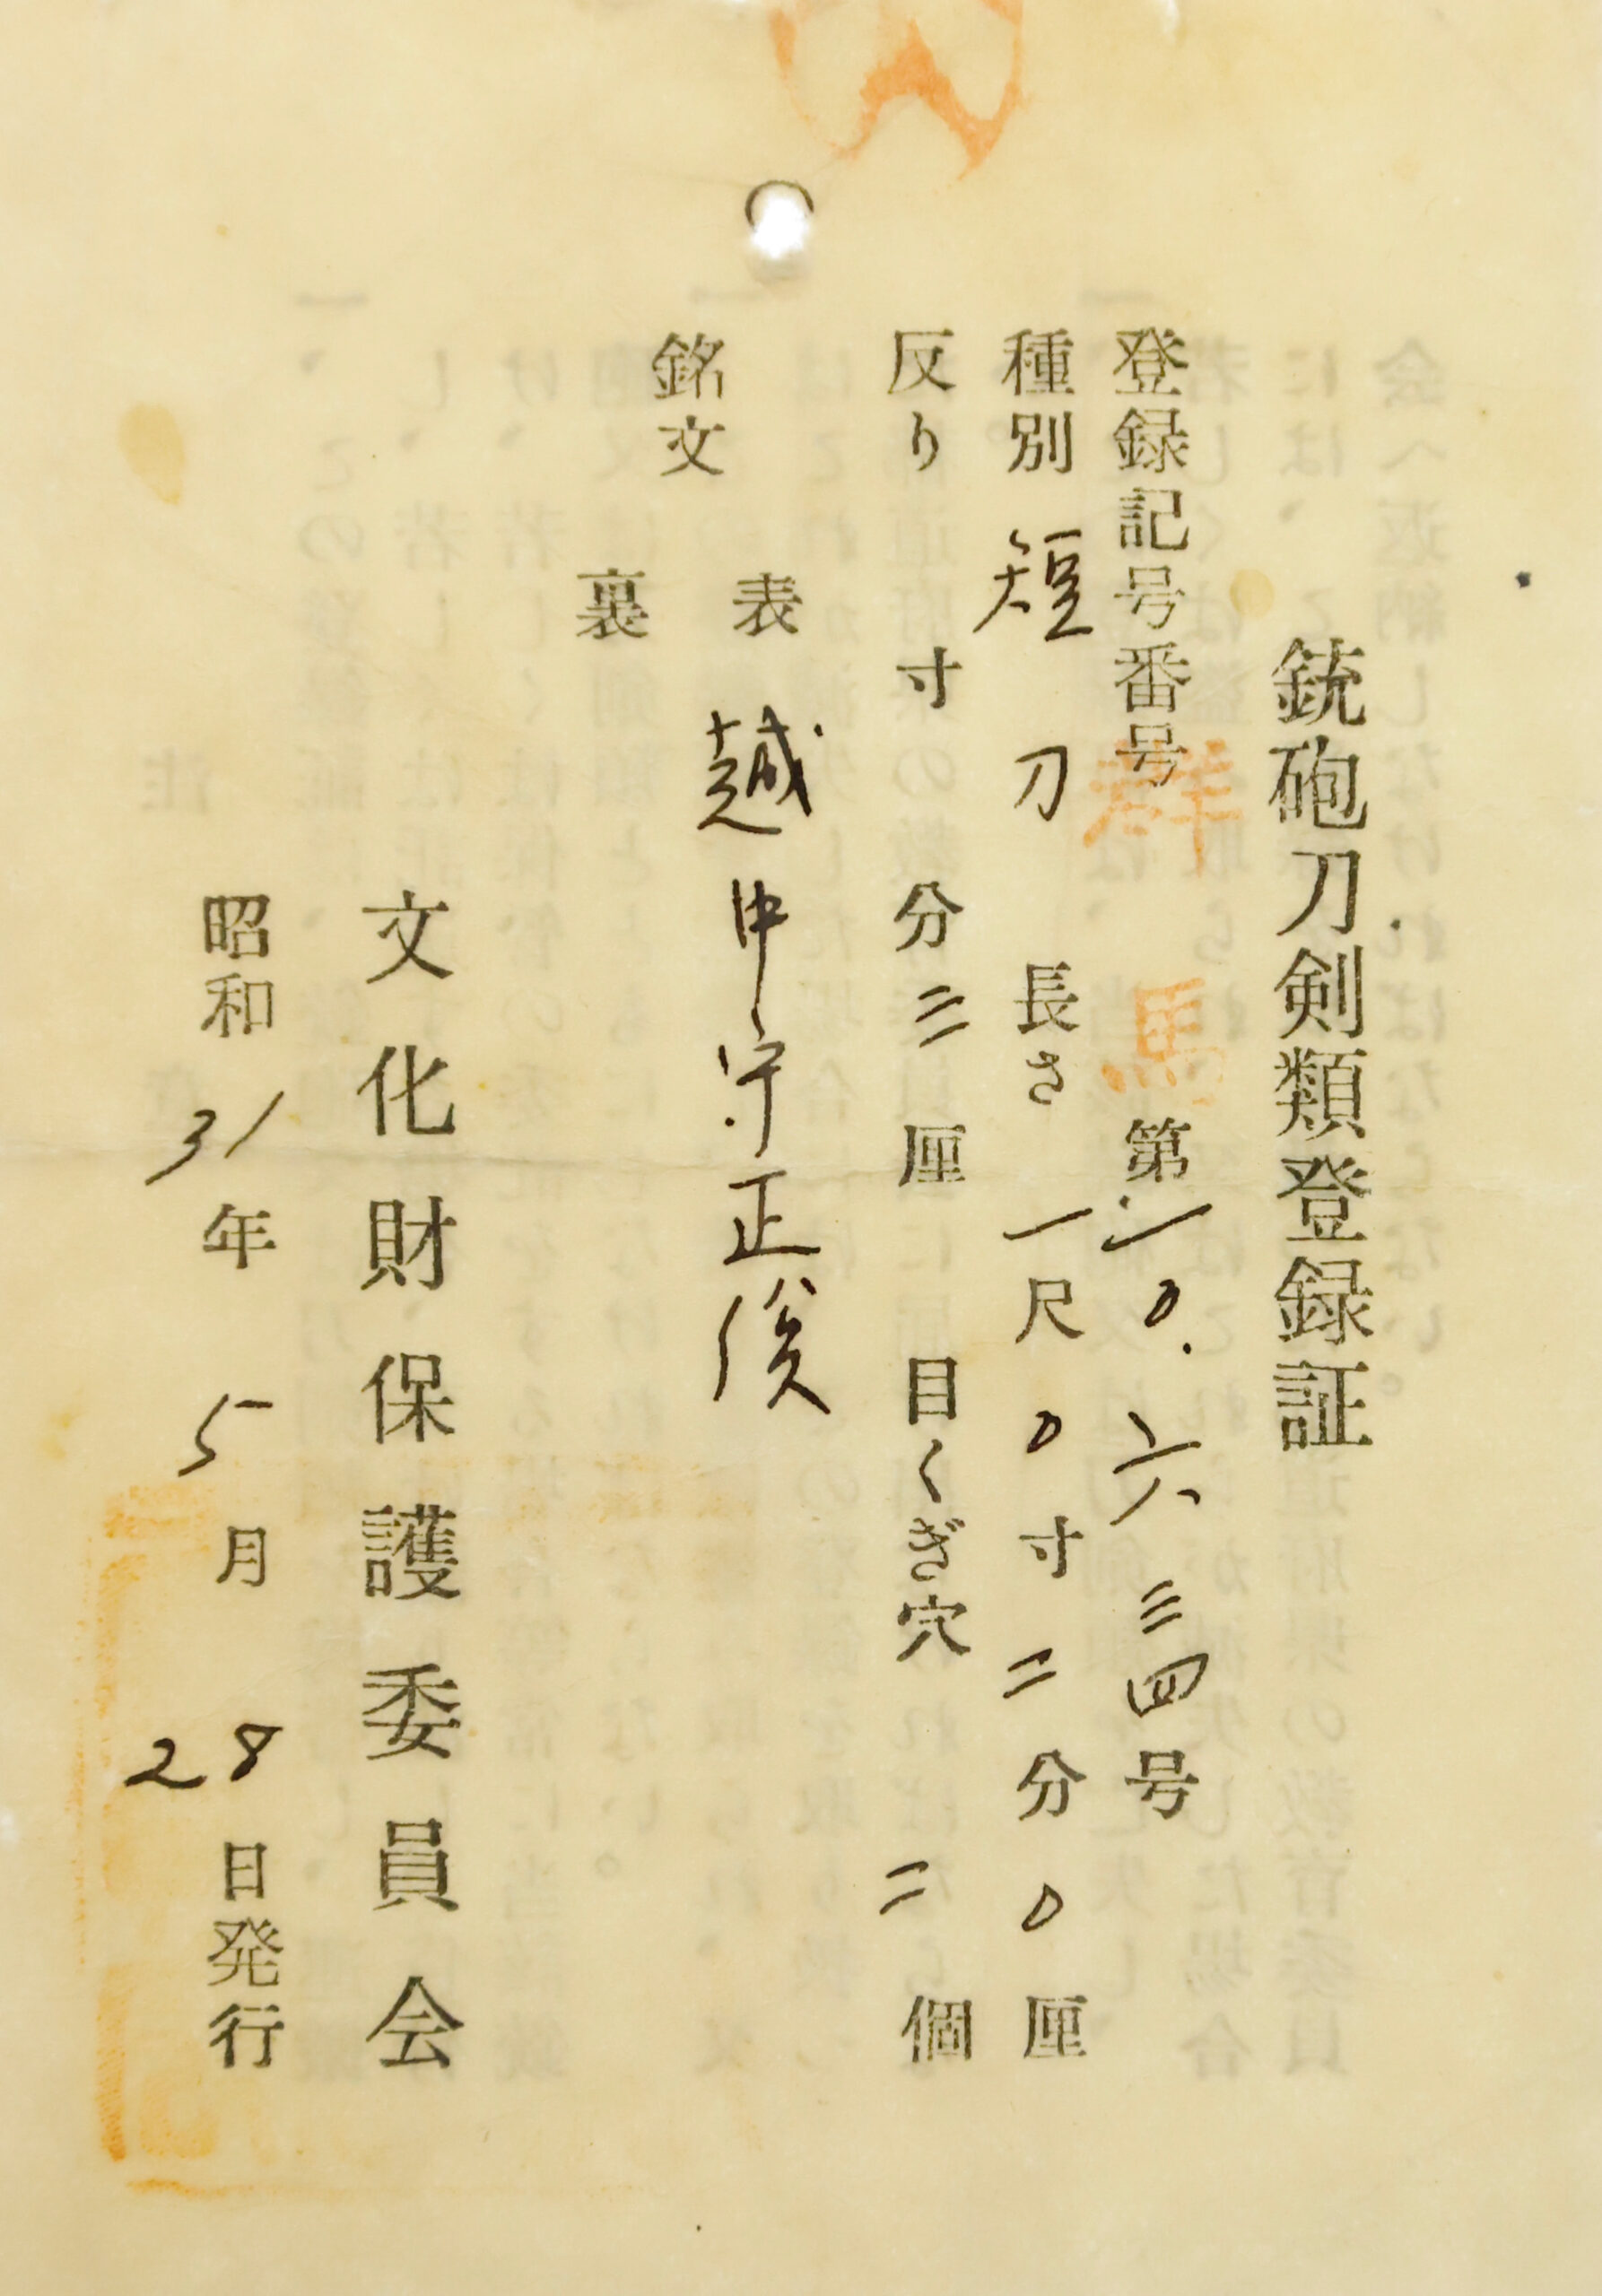 銃砲刀剣類登録証
登録記号番号 群馬 第一〇六三四号
種別 短刀 長さ 一尺〇寸二分〇厘
反り 寸 分三厘 目くぎ穴 二個
銘文
表 越中守正俊
裏
文化財保護委員会
昭和31年5月28日発行